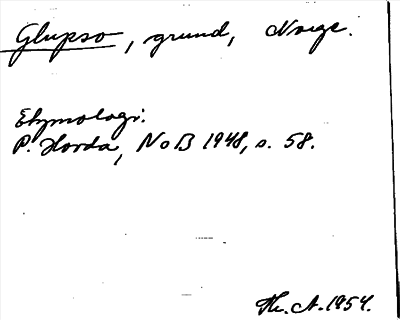 Glupso, grund, Norge.
Etymologi:
P. Hovda, NoB 1948, s. 58.
Th. A. 1954.